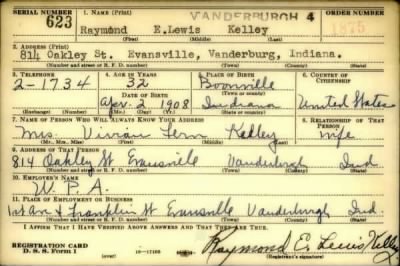 SERIAL NUMBER 1. NAME (Print) VANDERBURGH 4 ORDER NUMBER
623 Raymond E.Lewis Kelley 1875
(First) (Middle) (Last)
2. ADDRESS (Print)
814 Oakley St. Evansville, Vanderburg, Indiana.
(Number and street or R. F. D. number) (Town) (County) (State)
3. TELEPHONE 4. AGE IN YEARS 5. PLACE OF BIRTH 6. COUNTRY OF CITIZENSHIP
2-1734 32 Boonville
DATE OF BIRTH (Town or county)
Apr. 2 1908 Indiana United States
(Exchange) (Number) (Mo.) (Day) (Yr.) (State or country)
7. NAME OF PERSON WHO WILL ALWAYS KNOW YOUR ADDRESS 8. RELATIONSHIP OF THAT PERSON
Mrs. Vivian Fern Kelley wife
(Mr., Mrs., Miss) (First) (Middle) (Last)
9. ADDRESS OF THAT PERSON
814 Oakley St Evansville Vanderburgh Ind
(Number and street or R. F. D. number) (Town) (County) (State)
10. EMPLOYER'S NAME
W. P. A.
11. PLACE OF EMPLOYMENT OR BUSINESS
1st Ave & Franklin St Evansville Vanderburgh Ind.
(Number and street or R. F. D. number) (Town) (County) (State)
I AFFIRM THAT I HAVE VERIFIED ABOVE ANSWERS AND THAT THEY ARE TRUE.
REGISTRATION CARD
D. S. S. Form 1 (over) 16-17105 Raymond E. Lewis Kelley
(Registrant's signature)